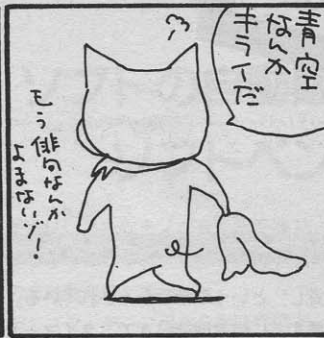 青空
なんか
キライだ
もう俳句なんか
よまないゾー!